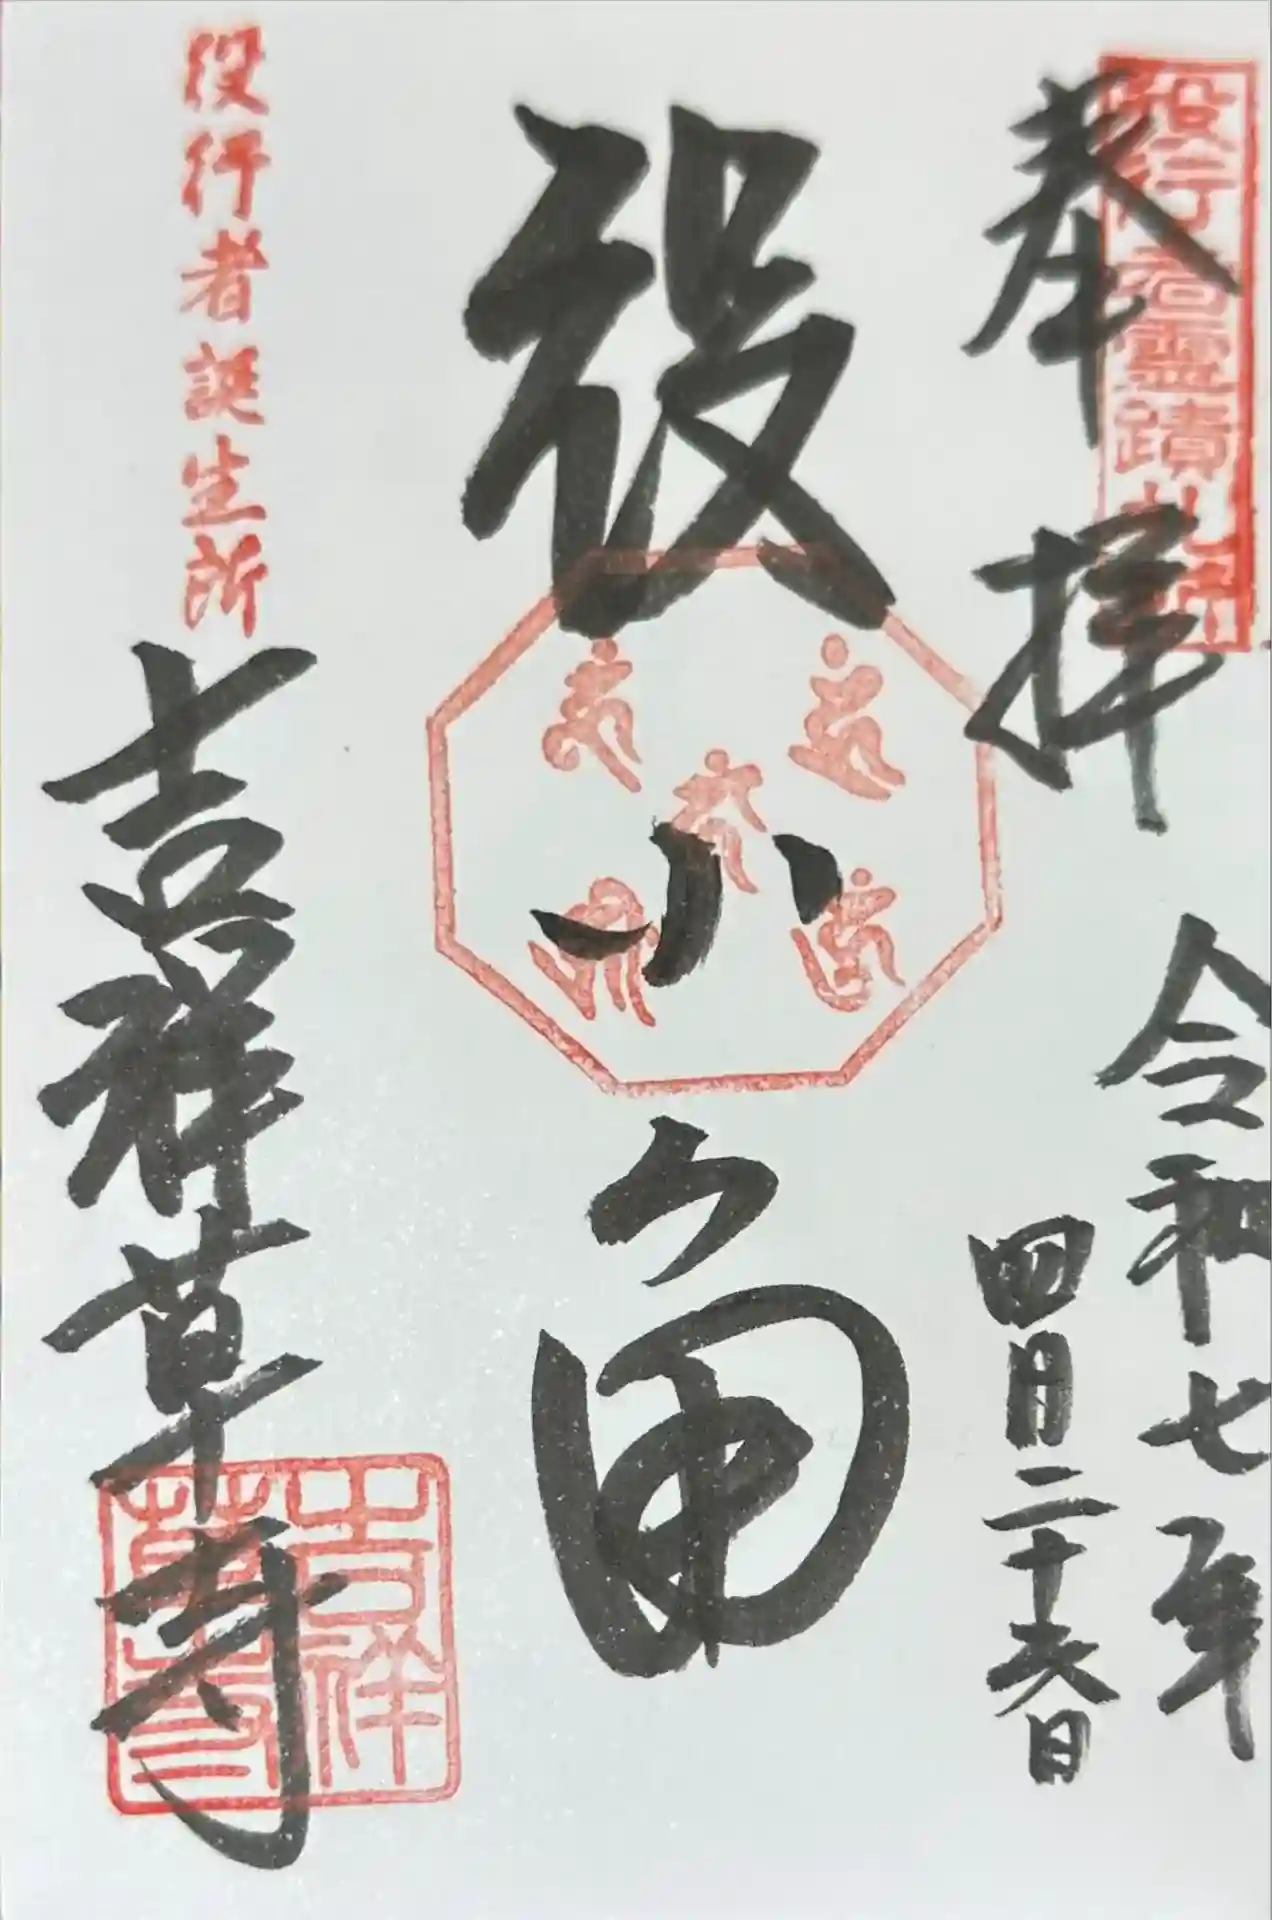 奉拝
役行者霊蹟札所
令和七年
四月二十六日
役小角
役行者誕生所
吉祥草寺
吉祥草寺